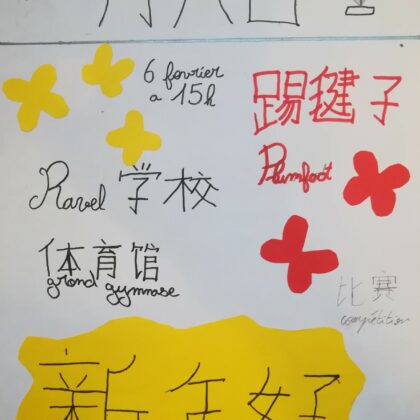 月六日
6 fevrier
a 15h
踢毽子
Plumfoot
Ravel 学校
体育馆
grand gymnase
比赛
compétition
新年好